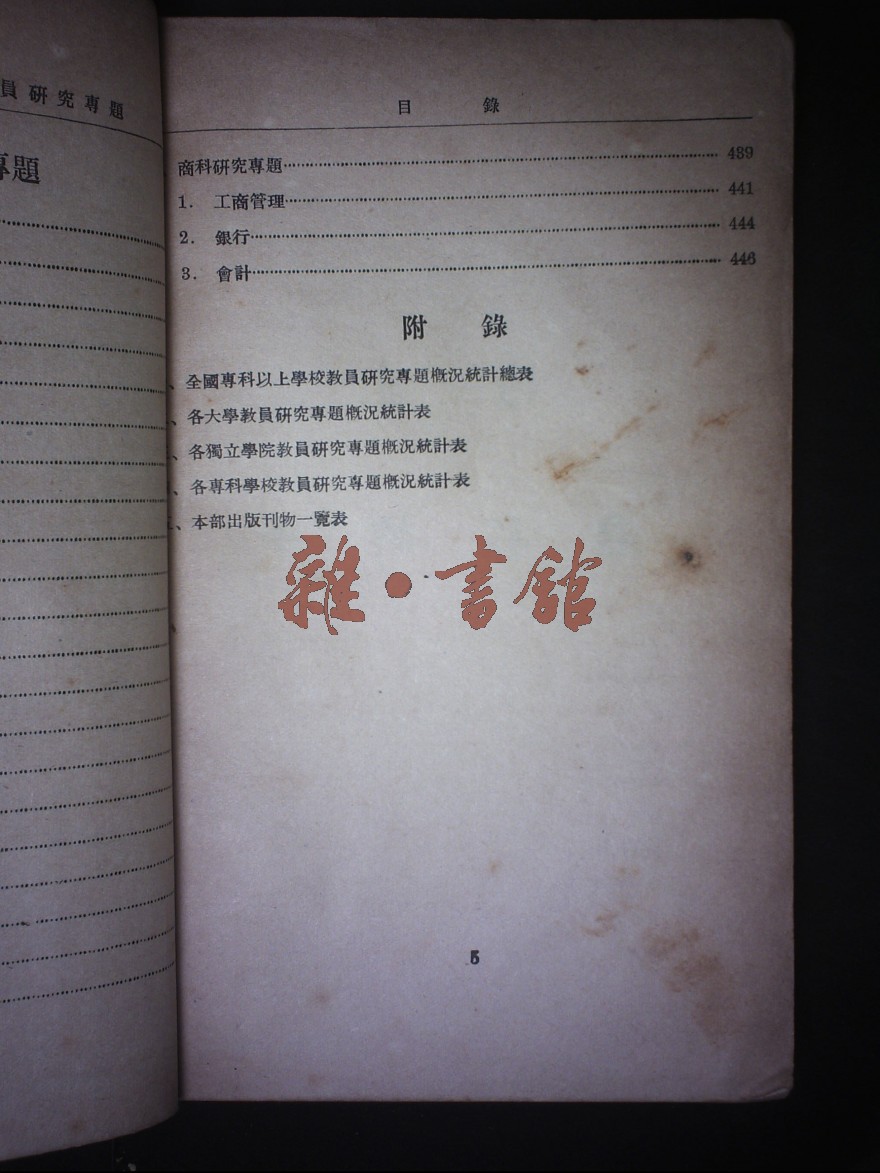 員研究專題
專題
目錄
商科研究專題 489
1. 工商管理 441
2. 銀行 444
3. 會計 446
附錄
、全國專科以上學校教員研究專題概況統計總表
、各大學教員研究專題概況統計表
、各獨立學院教員研究專題概況統計表
、各專科學校教員研究專題概況統計表
、本部出版刊物一覽表
雜·書館
5